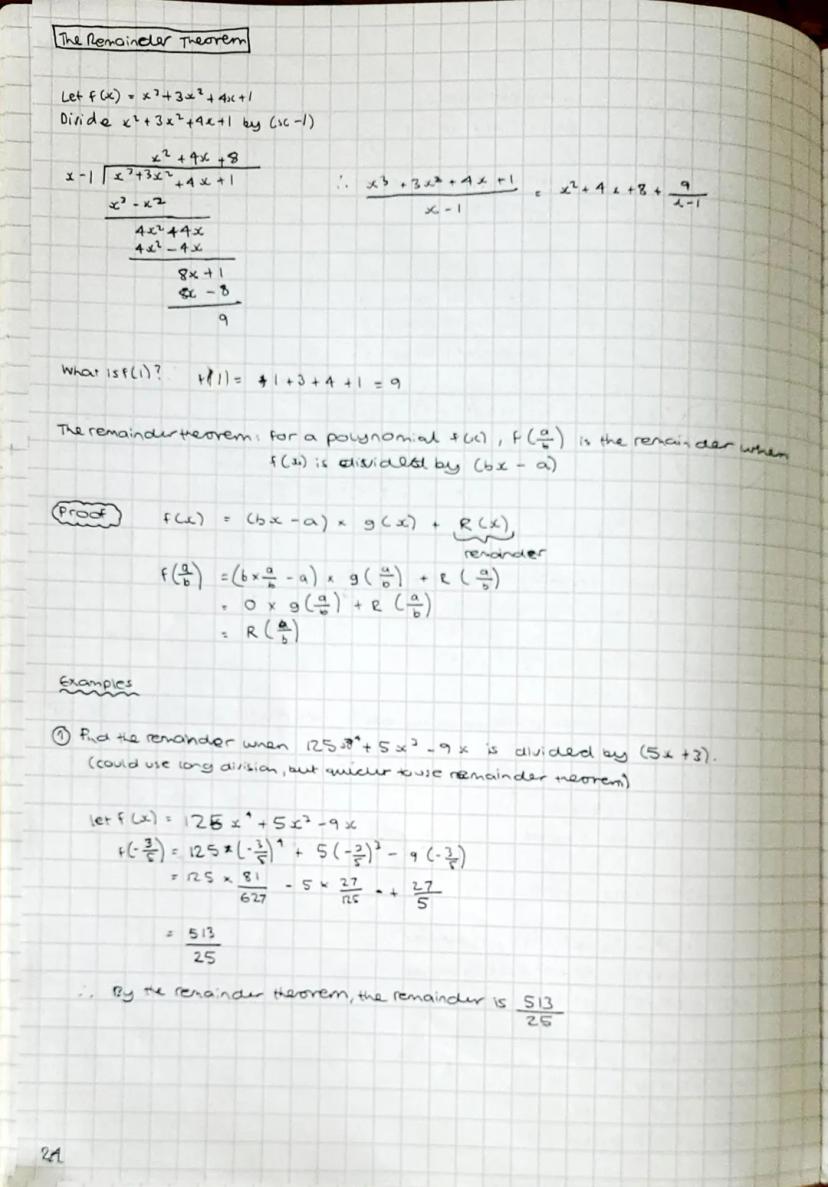 The Remainder Theorem
Let f(x) = x³ + 3x² + 4x + 1
Divide x² + 3x² + 4x + 1 by (x - 1)
x² + 4x + 8
x - 1 | x³ + 3x² + 4x + 1
x³ - x²
4x² + 4x
4x² - 4x
8x + 1
8x - 8
9
∴ x³ + 3x² + 4x + 1 / x - 1 = x² + 4x + 8 + 9 / x - 1
What is f(1)? f(1) = 1 + 3 + 4 + 1 = 9
The remainder theorem: for a polynomial f(x), f(a/b) is the remainder when
f(x) is divided by (bx - a)
Proof f(x) = (bx - a) × g(x) + R(x)
remainder
f(a/b) = (b × a/b - a) × g(a/b) + R(a/b)
= 0 × g(a/b) + R(a/b)
= R(a/b)
Examples
① Find the remainder when 125x⁴ + 5x³ - 9x is divided by (5x + 3).
(could use long division, but quicker to use remainder theorem)
let f(x) = 125x⁴ + 5x³ - 9x
f(-3/5) = 125 × (-3/5)⁴ + 5(-3/5)³ - 9(-3/5)
= 125 × 81/627 - 5 × 27/125 + 27/5
= 513/25
∴ By the remainder theorem, the remainder is 513/25
21